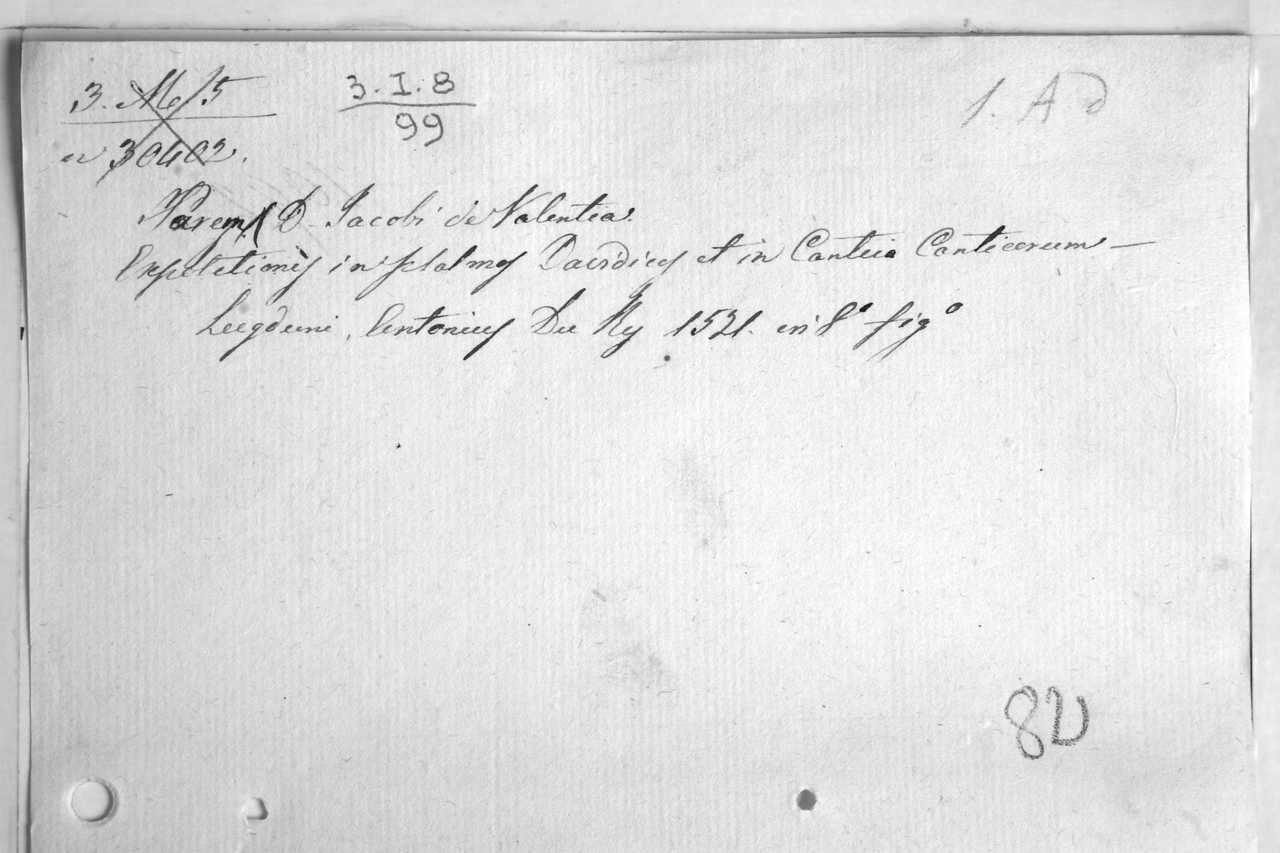 3. Me/5
3.I.8
99
1. A d
n 30402.
Parem D. Jacobi de Valentia.
Expositionis in psalmos Davidicos et in Cantica Canticorum —
Lugduni, Antonius Du Ry 1521. in 8° fig°
82